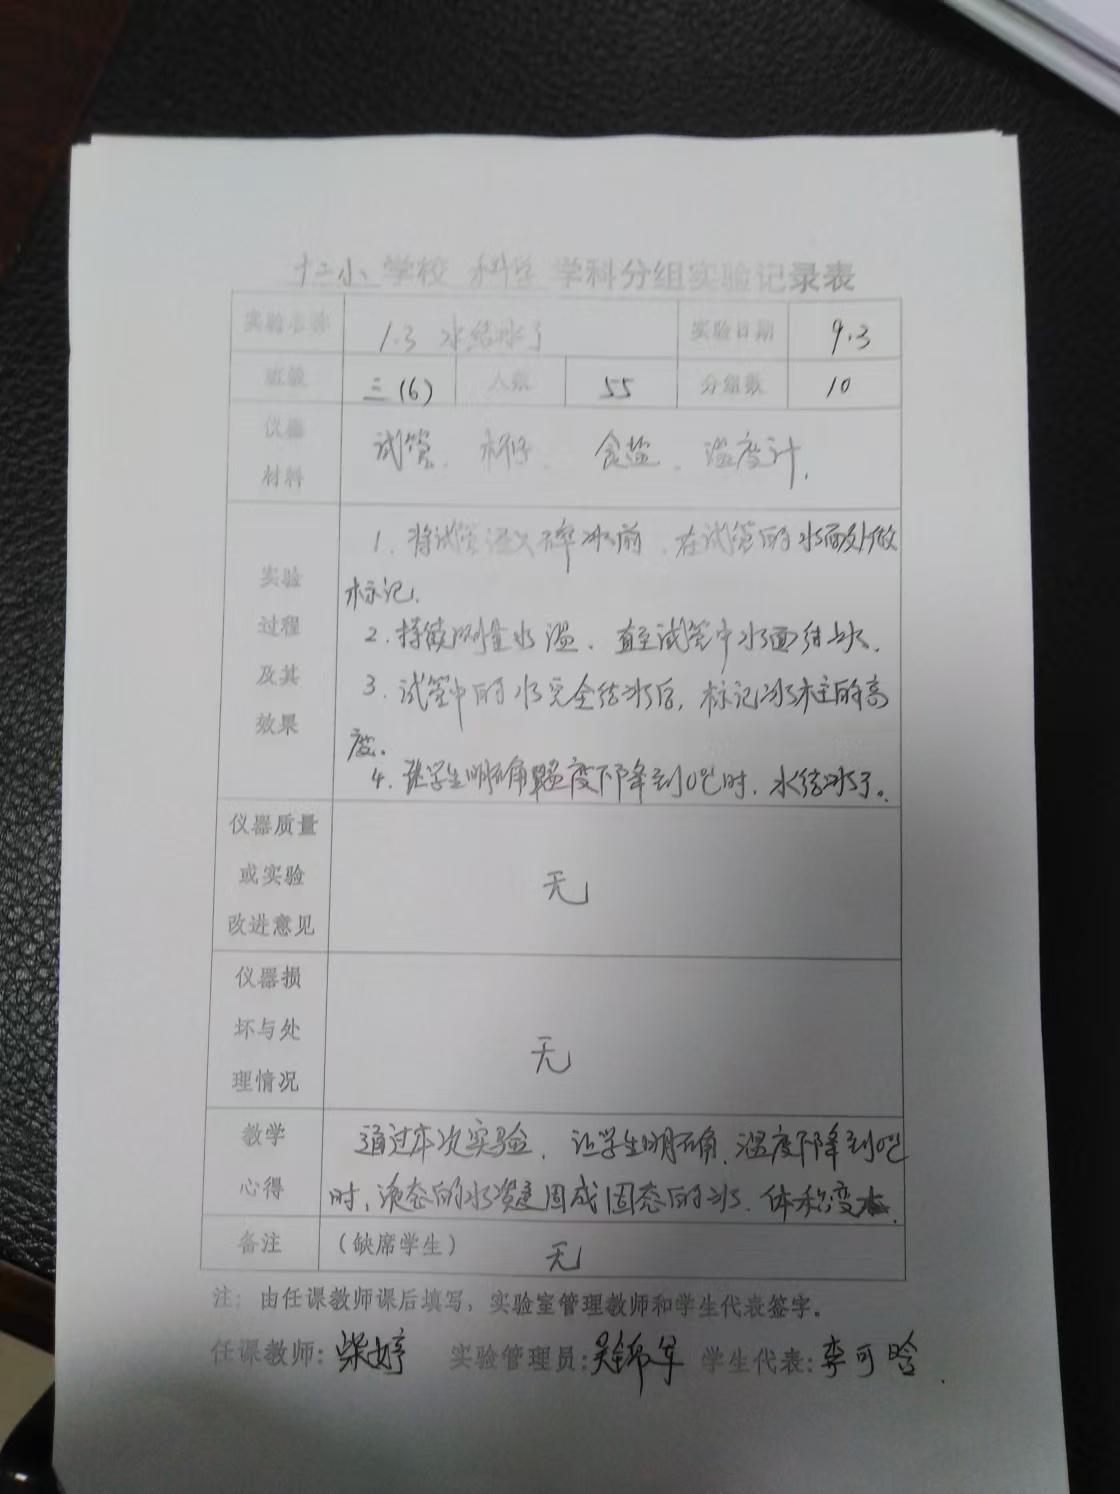 十二小 学校 科学 学科分组实验记录表
实验名称 1.3 水结冰了 实验日期 9.3
班级 三(6) 人数 55 分组数 10
仪器
材料
试管、杯子、食盐、温度计.
实验
过程
及其
效果
1. 将试管浸入碎冰前、在试管的水面处做
标记.
2. 持续测量水温、直至试管中水面结冰.
3. 试管中的水完全结冰后, 标记冰柱的高
度.
4. 让学生明确温度下降到0℃时, 水结冰了。
仪器质量
或实验
改进意见
无
仪器损
坏与处
理情况
无
教学
心得
通过本次实验、让学生明确、温度下降到0℃
时, 液态的水凝固成固态的冰、体积变大.
备注 (缺席学生) 无
注: 由任课教师课后填写, 实验室管理教师和学生代表签字。
任课教师: 柴婷 实验管理员: 学生代表: 李可晗.